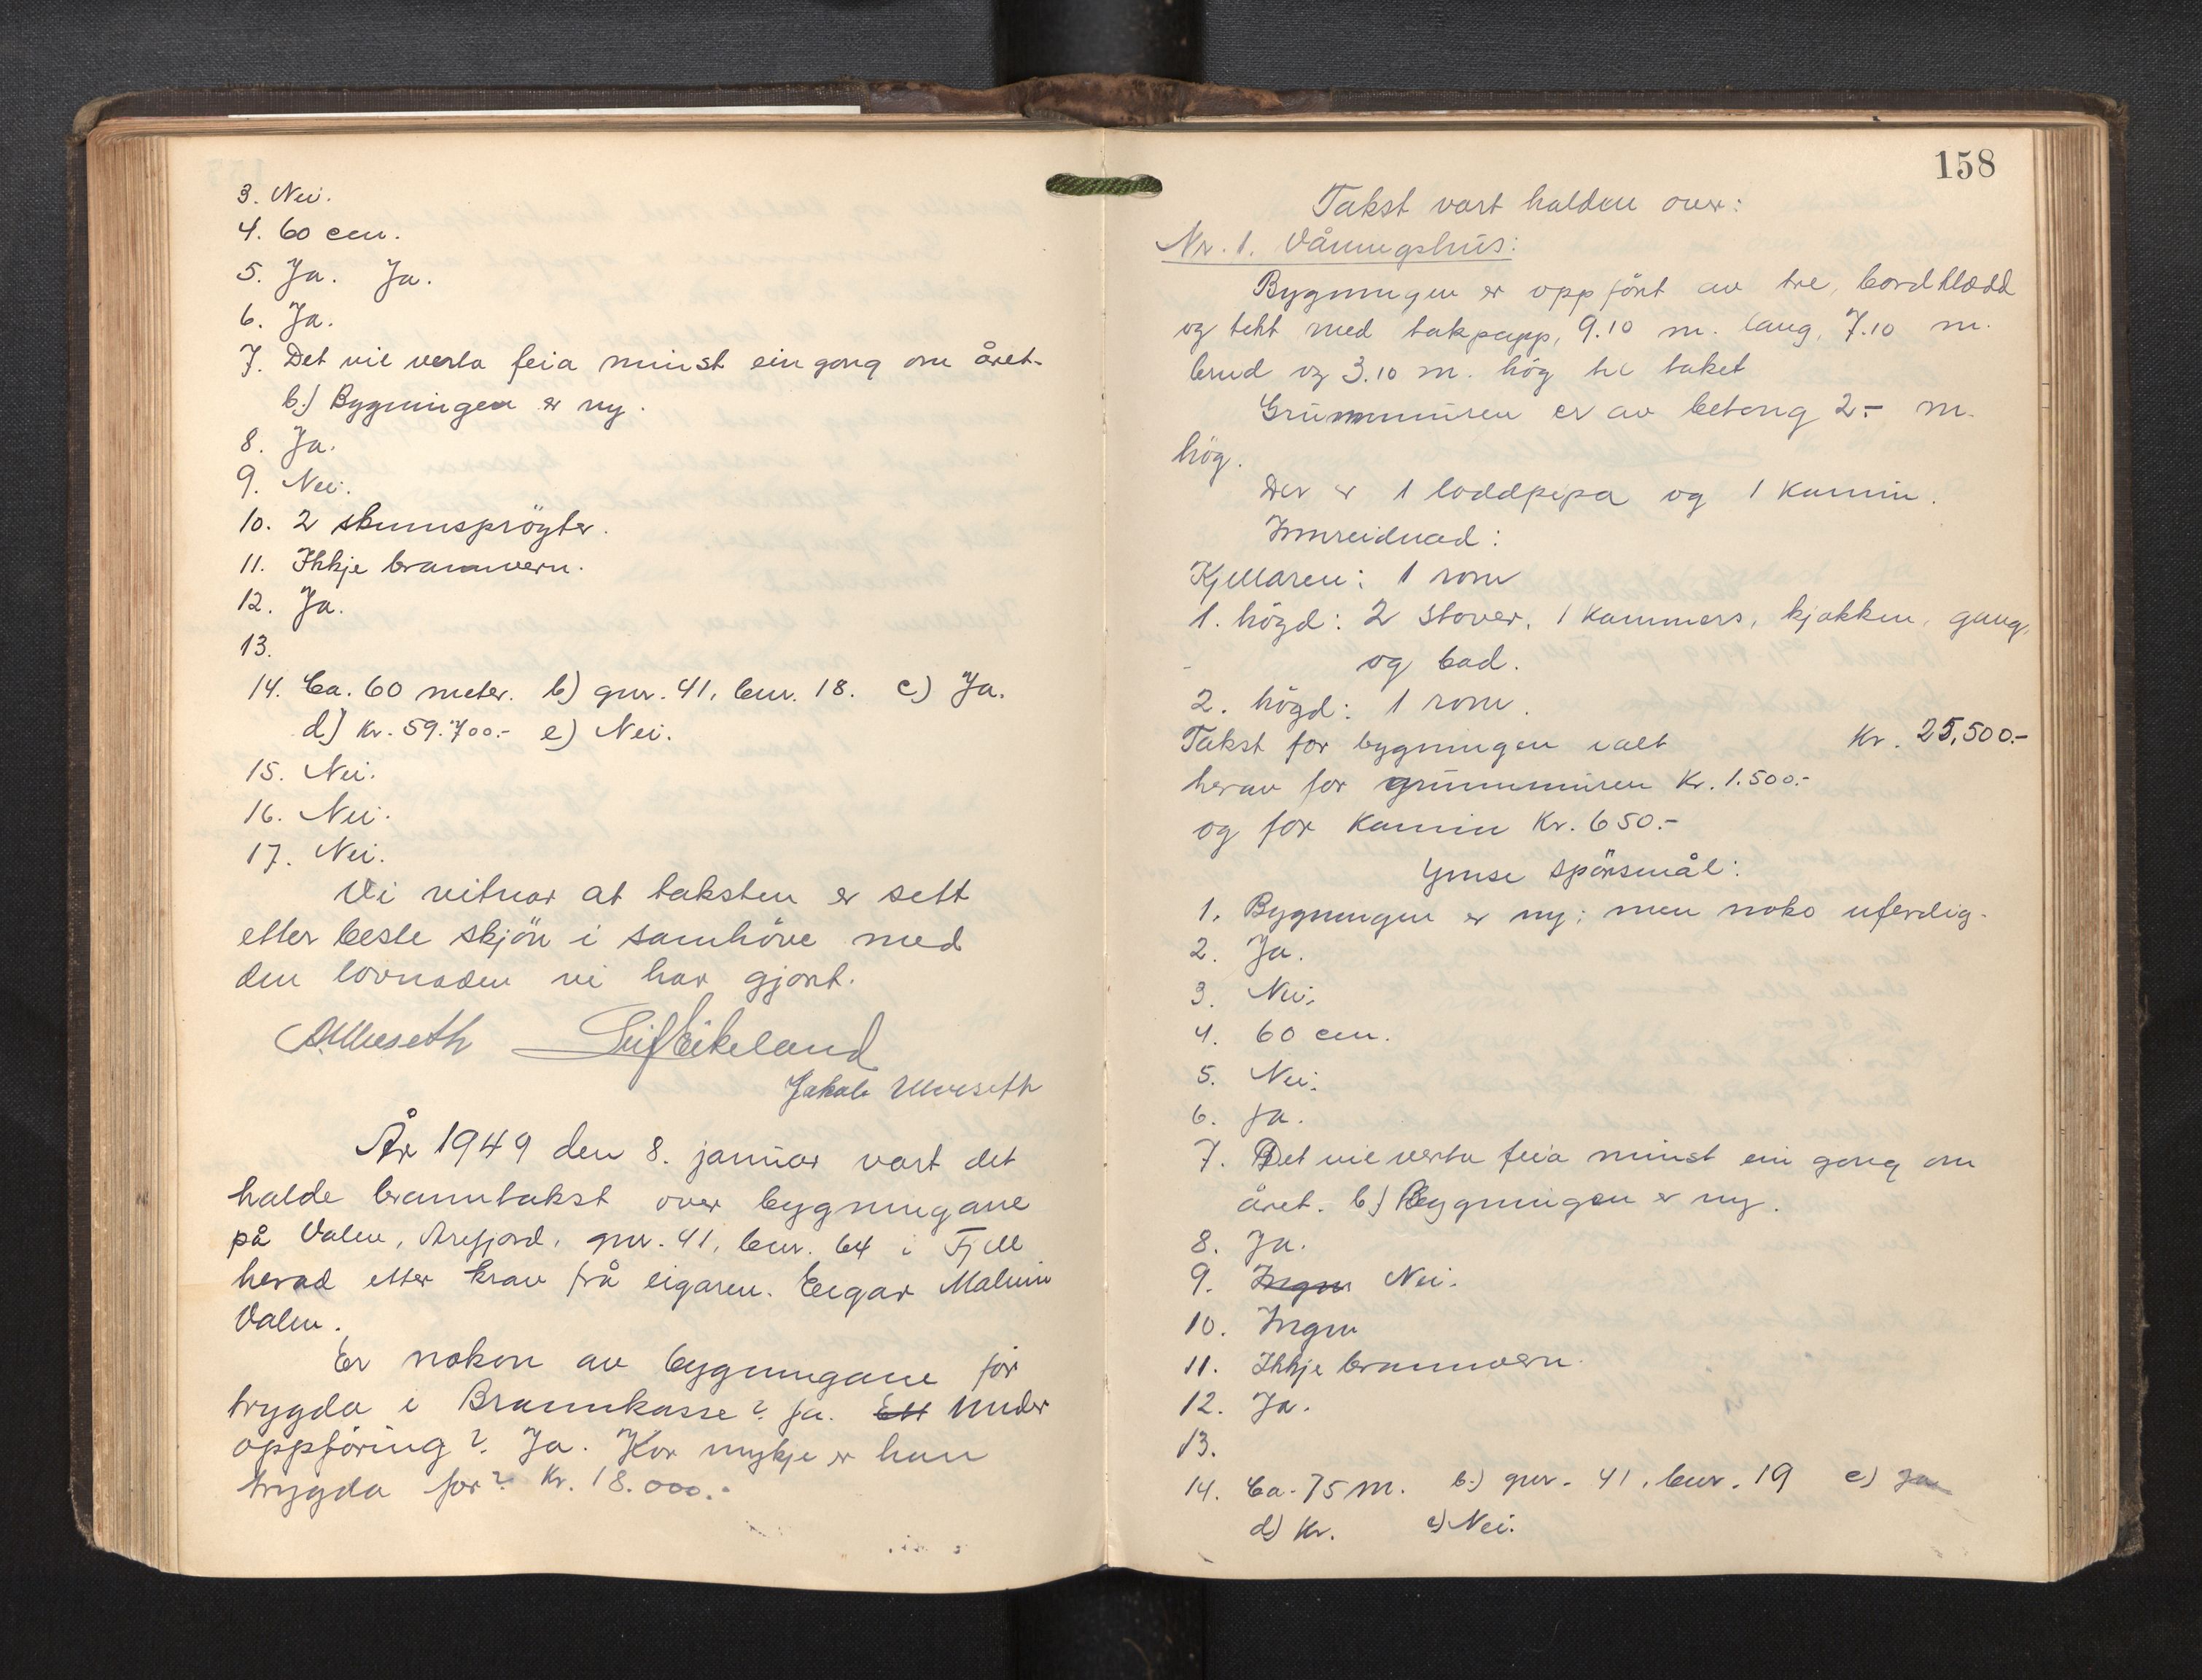 3. Nei.
4. 60 cm.
5. Ja. Ja.
6. Ja.
7. Det vil verta feia minst ein gong om året.
b.) Bygningen er ny.
8. Ja.
9. Nei.
10. 2 skumsprøyter.
11. Ikkje brannvern.
12. Ja.
13.
14. Ca. 60 meter. b) gnr. 41, bnr. 18. c) Ja.
d) Kr. 59.700.- e) Nei.
15. Nei.
16. Nei.
17. Nei.
Vi vitnar at taksten er sett
etter beste skjön i samhöve med
den lovnaden vi har gjort.
Leif Eikeland
Jakob Ulveseth
År 1949 den 8. januar vart det
halde branntakst over bygningane
på Valen, Arefjord, gnr. 41, bnr. 64 i Fjell
herad etter krav frå eigaren. Eigar Malvin
Valen.
Er nokon av bygningane før
trygda i Brannkasse? Ja. Ett Under
oppföring? Ja. Kor mykje er han
trygda for? Kr. 18.000.-
158
Takst vart halden over:
Nr. 1. Våningshus:
Bygningen er oppfört av tre, bordklædd
og tekt med takpapp, 9.10 m. lang, 7.10 m.
breid og 3.10 m. hög til taket
Grunnmuren er av betong 2.- m.
hög.
Der er 1 loddpipa og 1 kamin.
Innreidnad:
Kjellaren: 1 rom
1. högd: 2 stover, 1 kammers, kjøkken, gang,
og bad.
2. högd: 1 rom.
Takst for bygningen ialt Kr. 25,500.-
herav for grunnmuren Kr. 1.500.-
og for kamin Kr. 650.-
Ymse spörsmål:
1. Bygningen er ny; men noko uferdig.
2. Ja.
3. Nei.
4. 60 cm.
5. Nei.
6. Ja.
7. Det vil verta feia minst ein gong om
året. b) Bygningen er ny.
8. Ja.
9. Ingen Nei.
10. Ingen
11. Ikkje brannvern.
12. Ja.
13.
14. Ca. 75 m. b.) gnr. 41, bnr. 19 c) Ja
d) Kr. e) Nei.